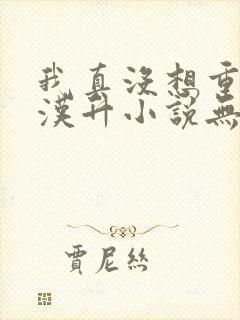 我真沒想重
漢升小說無
賈尼絲